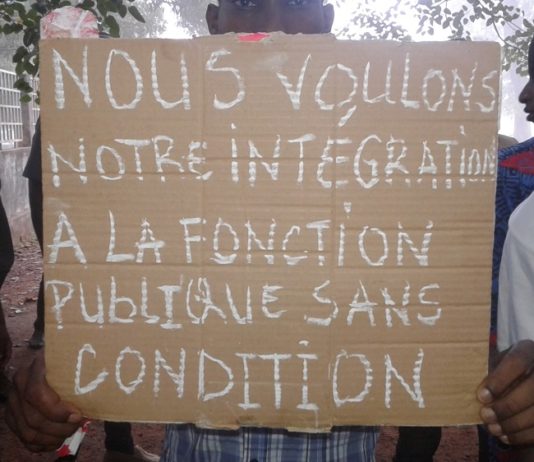 NOUS VOULONS
NOTRE INTÉGRATION
A LA FONCTION
PUBLIQUE SANS
CONDITION